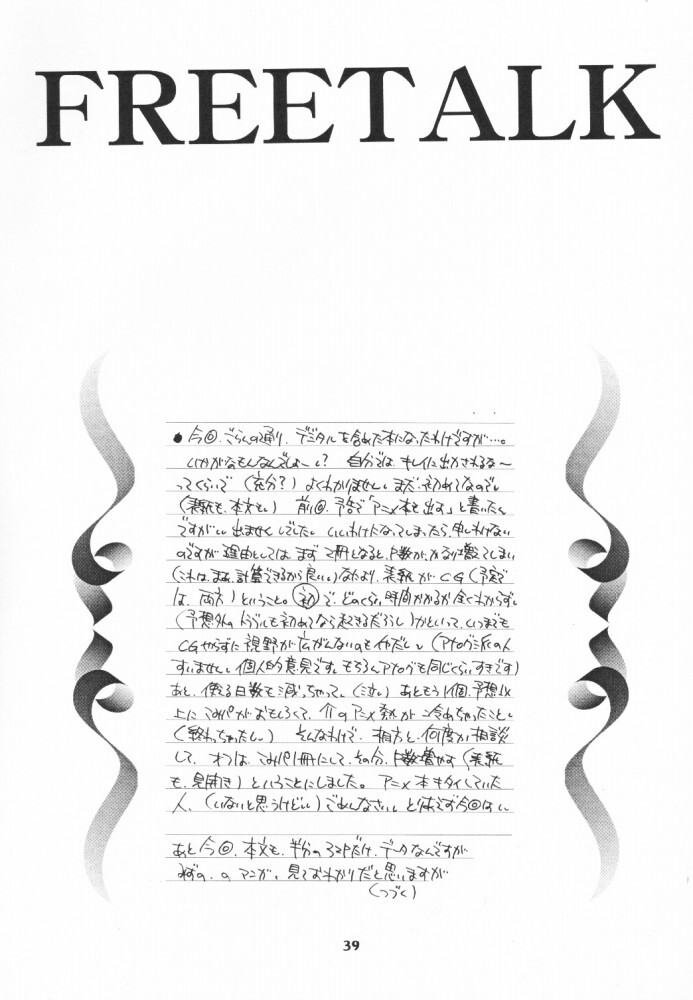 FREETALK
●今回、ごらんの通り、デジタルを含めた本になったわけですが…。
いかがなもんなんでしょーい? 自分では、キレイに出かされるな~
ってくらいで(充分?)よくわかりません。まだ初めてなので。
(表紙も、本文も。) 前回、予告で「アニメ本を出す」と書いたん
ですがい、出ませんでした。いいわけになってしまったら、申しわけない
のですが、理由としては、まず2冊となると、P数が、かなり増えてしまい
(これは、まあ、計算できるから良い。)なにより、表紙がCG(予定で
は、両方)ということ。初で、どのくらい時間がかかるか全くわからず。
(予想外のトラブルも初めてなら起きるだろうし)かといって、いつまでも
CGやらずに視野が広がんないのもイヤだし。(アナログ派の人
すいません。個人的意見です。もちろんアナログも同じくらいすきです)
あと、使える日数も減っちゃって、(泣)あともう1個、予想以
上にこみパがおもしろくて、介のアニメ熱が冷めちゃったこと。
(終わっちゃったし。) そんなわけで、相方と、何度か相談
して、オフは、こみパ1冊にして、その分、P数増やす(表紙
も、見開き)ということにしました。アニメ本キタイしていた
人、(いないと思うけどい)ごめんなさい。とりあえず今回はい
あと今回、本文も、半分の だけ、データなんですが
の マンガ、見ておわかりだと思いますが
(つづく)
39